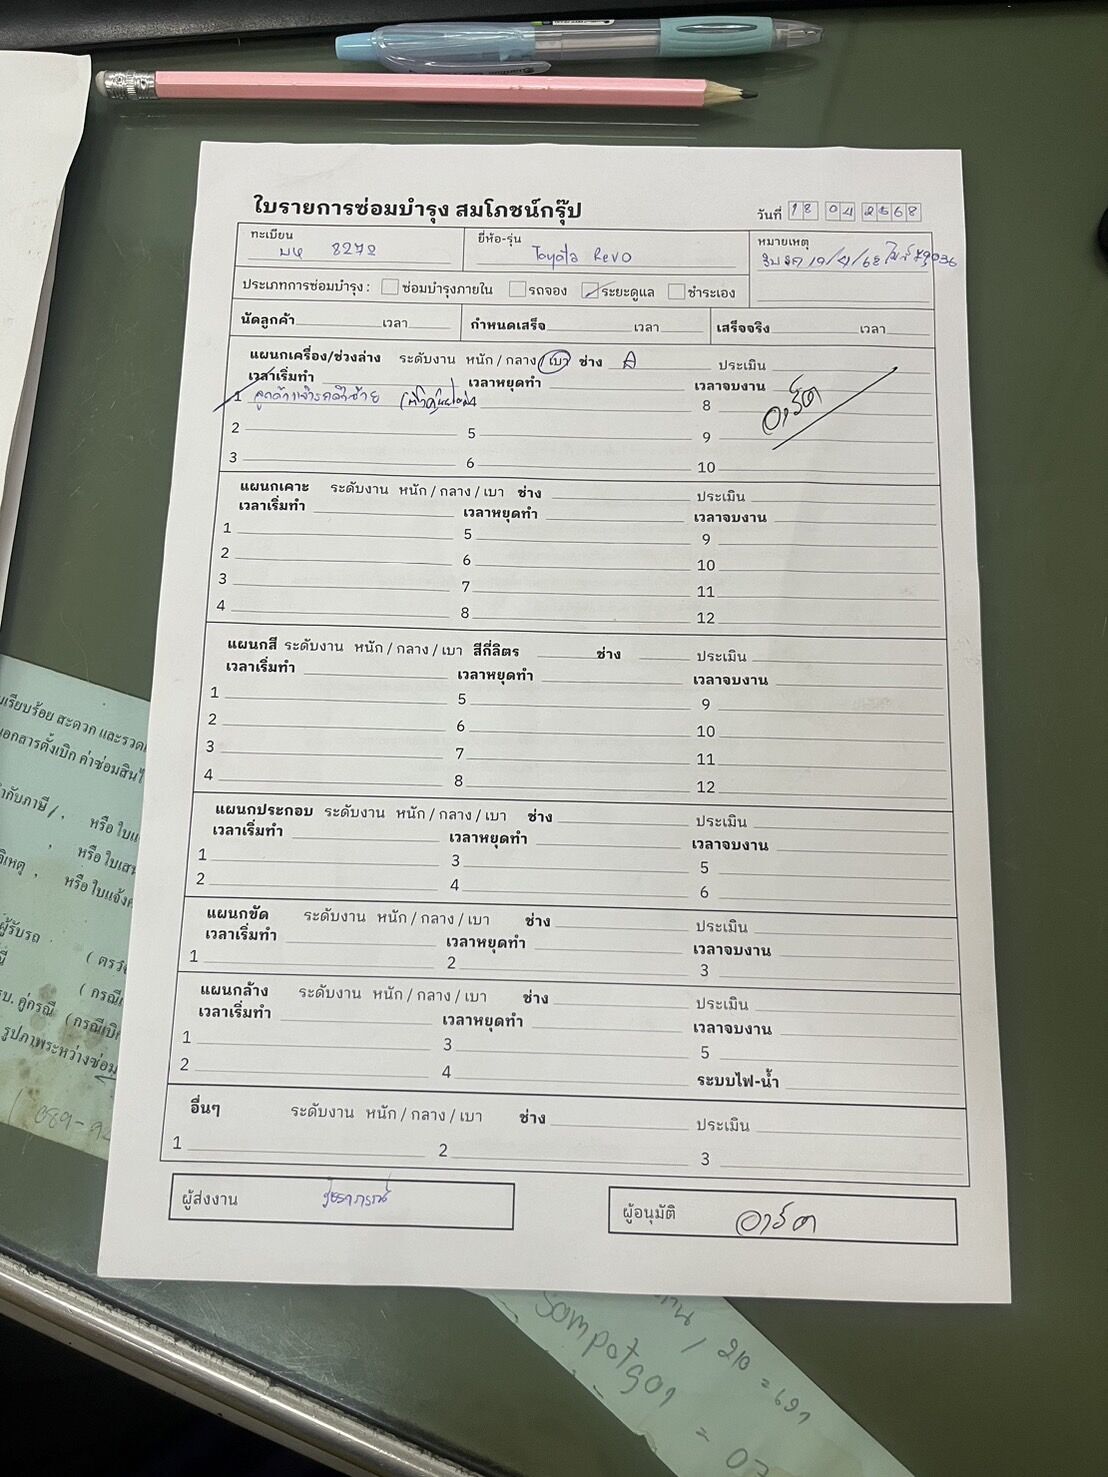 ใบรายการซ่อมบำรุง สมโภชน์กรุ๊ป
วันที่ 18 04 2568
ทะเบียน
บห 8272
ยี่ห้อ-รุ่น
Toyota Revo
หมายเหตุ
19/4/68
ประเภทการซ่อมบำรุง : ซ่อมบำรุงภายใน รถจอง ระยะดูแล ชำระเอง
นัดลูกค้า เวลา กำหนดเสร็จ เวลา เสร็จจริง เวลา
แผนกเครื่อง/ช่วงล่าง ระดับงาน หนัก / กลาง / เบา ช่าง A ประเมิน
เวลาเริ่มทำ เวลาหยุดทำ เวลาจบงาน
1 4 8
อาร์ต
2 5 9
3 6 10
แผนกเคาะ ระดับงาน หนัก / กลาง / เบา ช่าง ประเมิน
เวลาเริ่มทำ เวลาหยุดทำ เวลาจบงาน
1 5 9
2 6 10
3 7 11
4 8 12
แผนกสี ระดับงาน หนัก / กลาง / เบา สีกี่ลิตร ช่าง ประเมิน
เวลาเริ่มทำ เวลาหยุดทำ เวลาจบงาน
1 5 9
2 6 10
3 7 11
4 8 12
แผนกประกอบ ระดับงาน หนัก / กลาง / เบา ช่าง ประเมิน
เวลาเริ่มทำ เวลาหยุดทำ เวลาจบงาน
1 3 5
2 4 6
แผนกขัด ระดับงาน หนัก / กลาง / เบา ช่าง ประเมิน
เวลาเริ่มทำ เวลาหยุดทำ เวลาจบงาน
1 2 3
แผนกล้าง ระดับงาน หนัก / กลาง / เบา ช่าง ประเมิน
เวลาเริ่มทำ เวลาหยุดทำ เวลาจบงาน
1 3 5
2 4 ระบบไฟ-น้ำ
อื่นๆ ระดับงาน หนัก / กลาง / เบา ช่าง ประเมิน
1 2 3
ผู้ส่งงาน
ผู้อนุมัติ อาร์ต
เรียบร้อย สะดวก และรวด
เอกสารตั้งเบิก ค่าซ่อมสินไ
กำกับภาษี / , หรือ ใบแ
, หรือ ใบเสน
หรือ ใบแจ้ง
ผู้รับรถ
( ตรว
( กรณี
คู่กรณี (กรณีเบิก
รูปภาพระหว่างซ่อม
/ 210 =